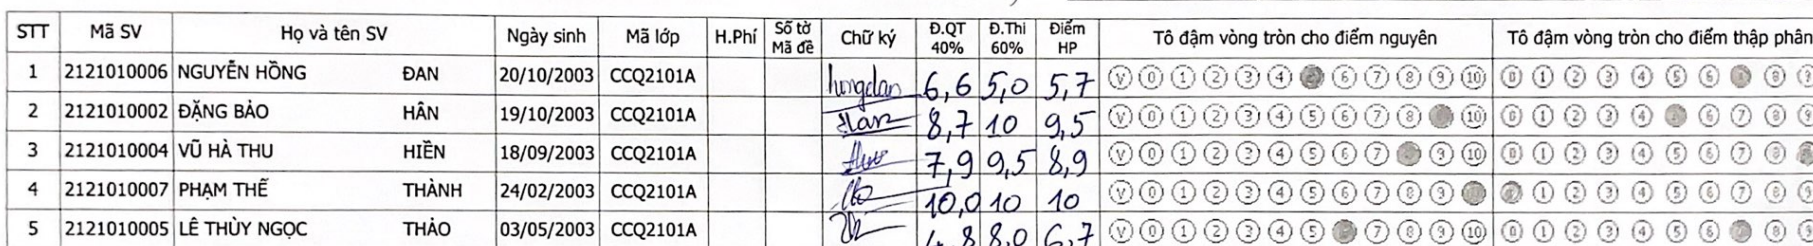 STT Mã SV Họ và tên SV Ngày sinh Mã lớp H.Phí Số tờ Mã đề Chữ ký Đ.QT 40% Đ.Thi 60% Điểm HP Tô đậm vòng tròn cho điểm nguyên Tô đậm vòng tròn cho điểm thập phân
1 2121010006 NGUYỄN HỒNG ĐAN 20/10/2003 CCQ2101A hongdan 6,6 5,0 5,7 V 0 1 2 3 4 6 7 8 9 10 0 1 2 3 4 5 6 8 9
2 2121010002 ĐẶNG BẢO HÂN 19/10/2003 CCQ2101A Hân 8,7 10 9,5 V 0 1 2 3 4 5 6 7 8 10 0 1 2 3 4 6 7 8 9
3 2121010004 VŨ HÀ THU HIỀN 18/09/2003 CCQ2101A 7,9 9,5 8,9 V 0 1 2 3 4 5 6 7 9 10 0 1 2 3 4 5 6 7 8
4 2121010007 PHẠM THẾ THÀNH 24/02/2003 CCQ2101A 10,0 10 10 V 0 1 2 3 4 5 6 7 8 9 1 2 3 4 5 6 7 8 9
5 2121010005 LÊ THÙY NGỌC THẢO 03/05/2003 CCQ2101A 4,8 8,0 6,7 V 0 1 2 3 4 5 7 8 9 10 0 1 2 3 4 5 6 8 9